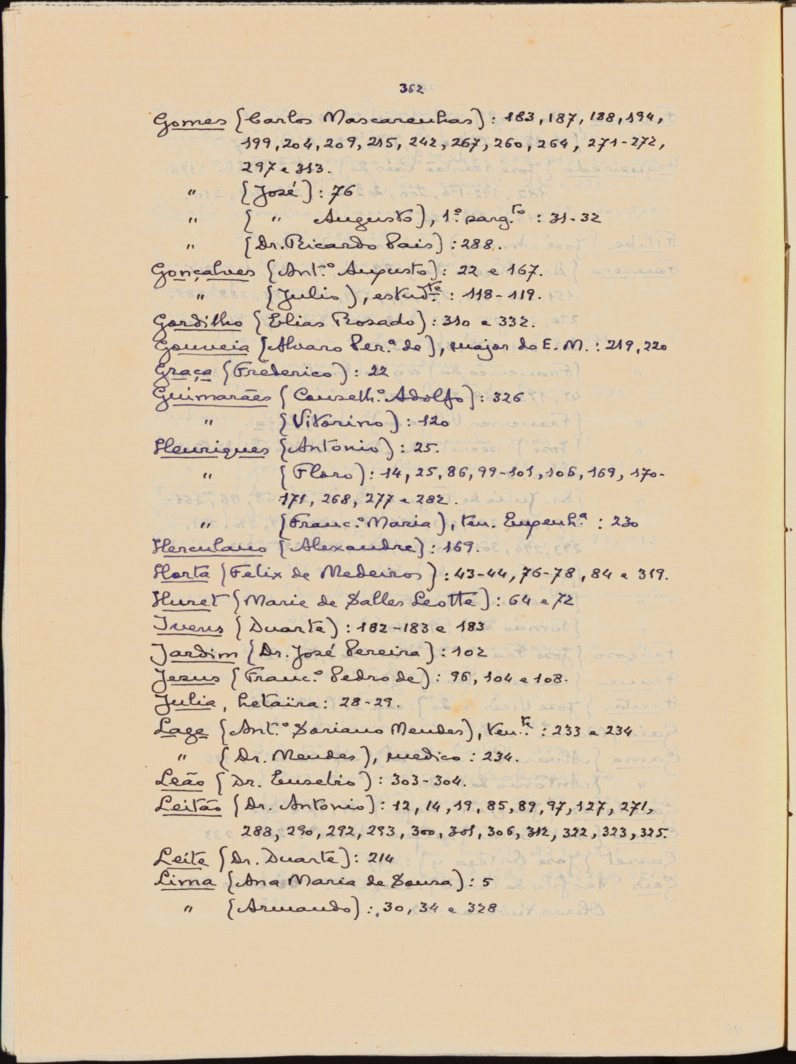 362
Gomes (Carlos Mascarenhas): 183, 187, 188, 194,
199, 204, 209, 215, 242, 267, 260, 264, 271-272,
297 e 313.
" (José): 76
" ( " Augusto), 1.º sarg.to : 31-32
" (Dr. Ricardo Pais): 288.
Gonçalves (Ant.º Augusto): 22 e 167.
" (Julio), estud.te : 118-119.
Gordilho (Elias Rosado): 310 e 332.
Gouveia (Alvaro Per.ª de), major do E. M. : 219, 220
Graça (Frederico): 22
Guimarães (Conselh.º Adolfo): 326
" (Vitorino): 120
Henriques (Antonio): 25.
" (Floro): 14, 25, 86, 99-101, 106, 169, 170-
171, 268, 277 e 282.
" (Franc.º Maria), ten. Engenh.ª : 230
Herculano (Alexandre): 169.
Horta (Felix de Medeiros): 43-44, 76-78, 84 e 319.
Huret (Marie de Salles Leotte): 64 e 72
Ivens (Duarte): 182-183 e 183
Jardim (Dr. José Pereira): 102
Jesus (Franc.º Pedro de): 96, 104 e 108.
Julia, hetaïra: 28-29.
Lage (Ant.º Soriano Mendes), ten.te : 233 e 234
" (Dr. Mendes), medico: 234.
Leão (Dr. Eusebio): 303-304.
Leitão (Dr. Antonio): 12, 14, 19, 85, 89, 97, 127, 271,
288, 290, 292, 293, 300, 301, 306, 312, 322, 323, 325.
Leite (Dr. Duarte): 214
Lima (Ana Maria de Soura): 5
" (Armando): 30, 34 e 328